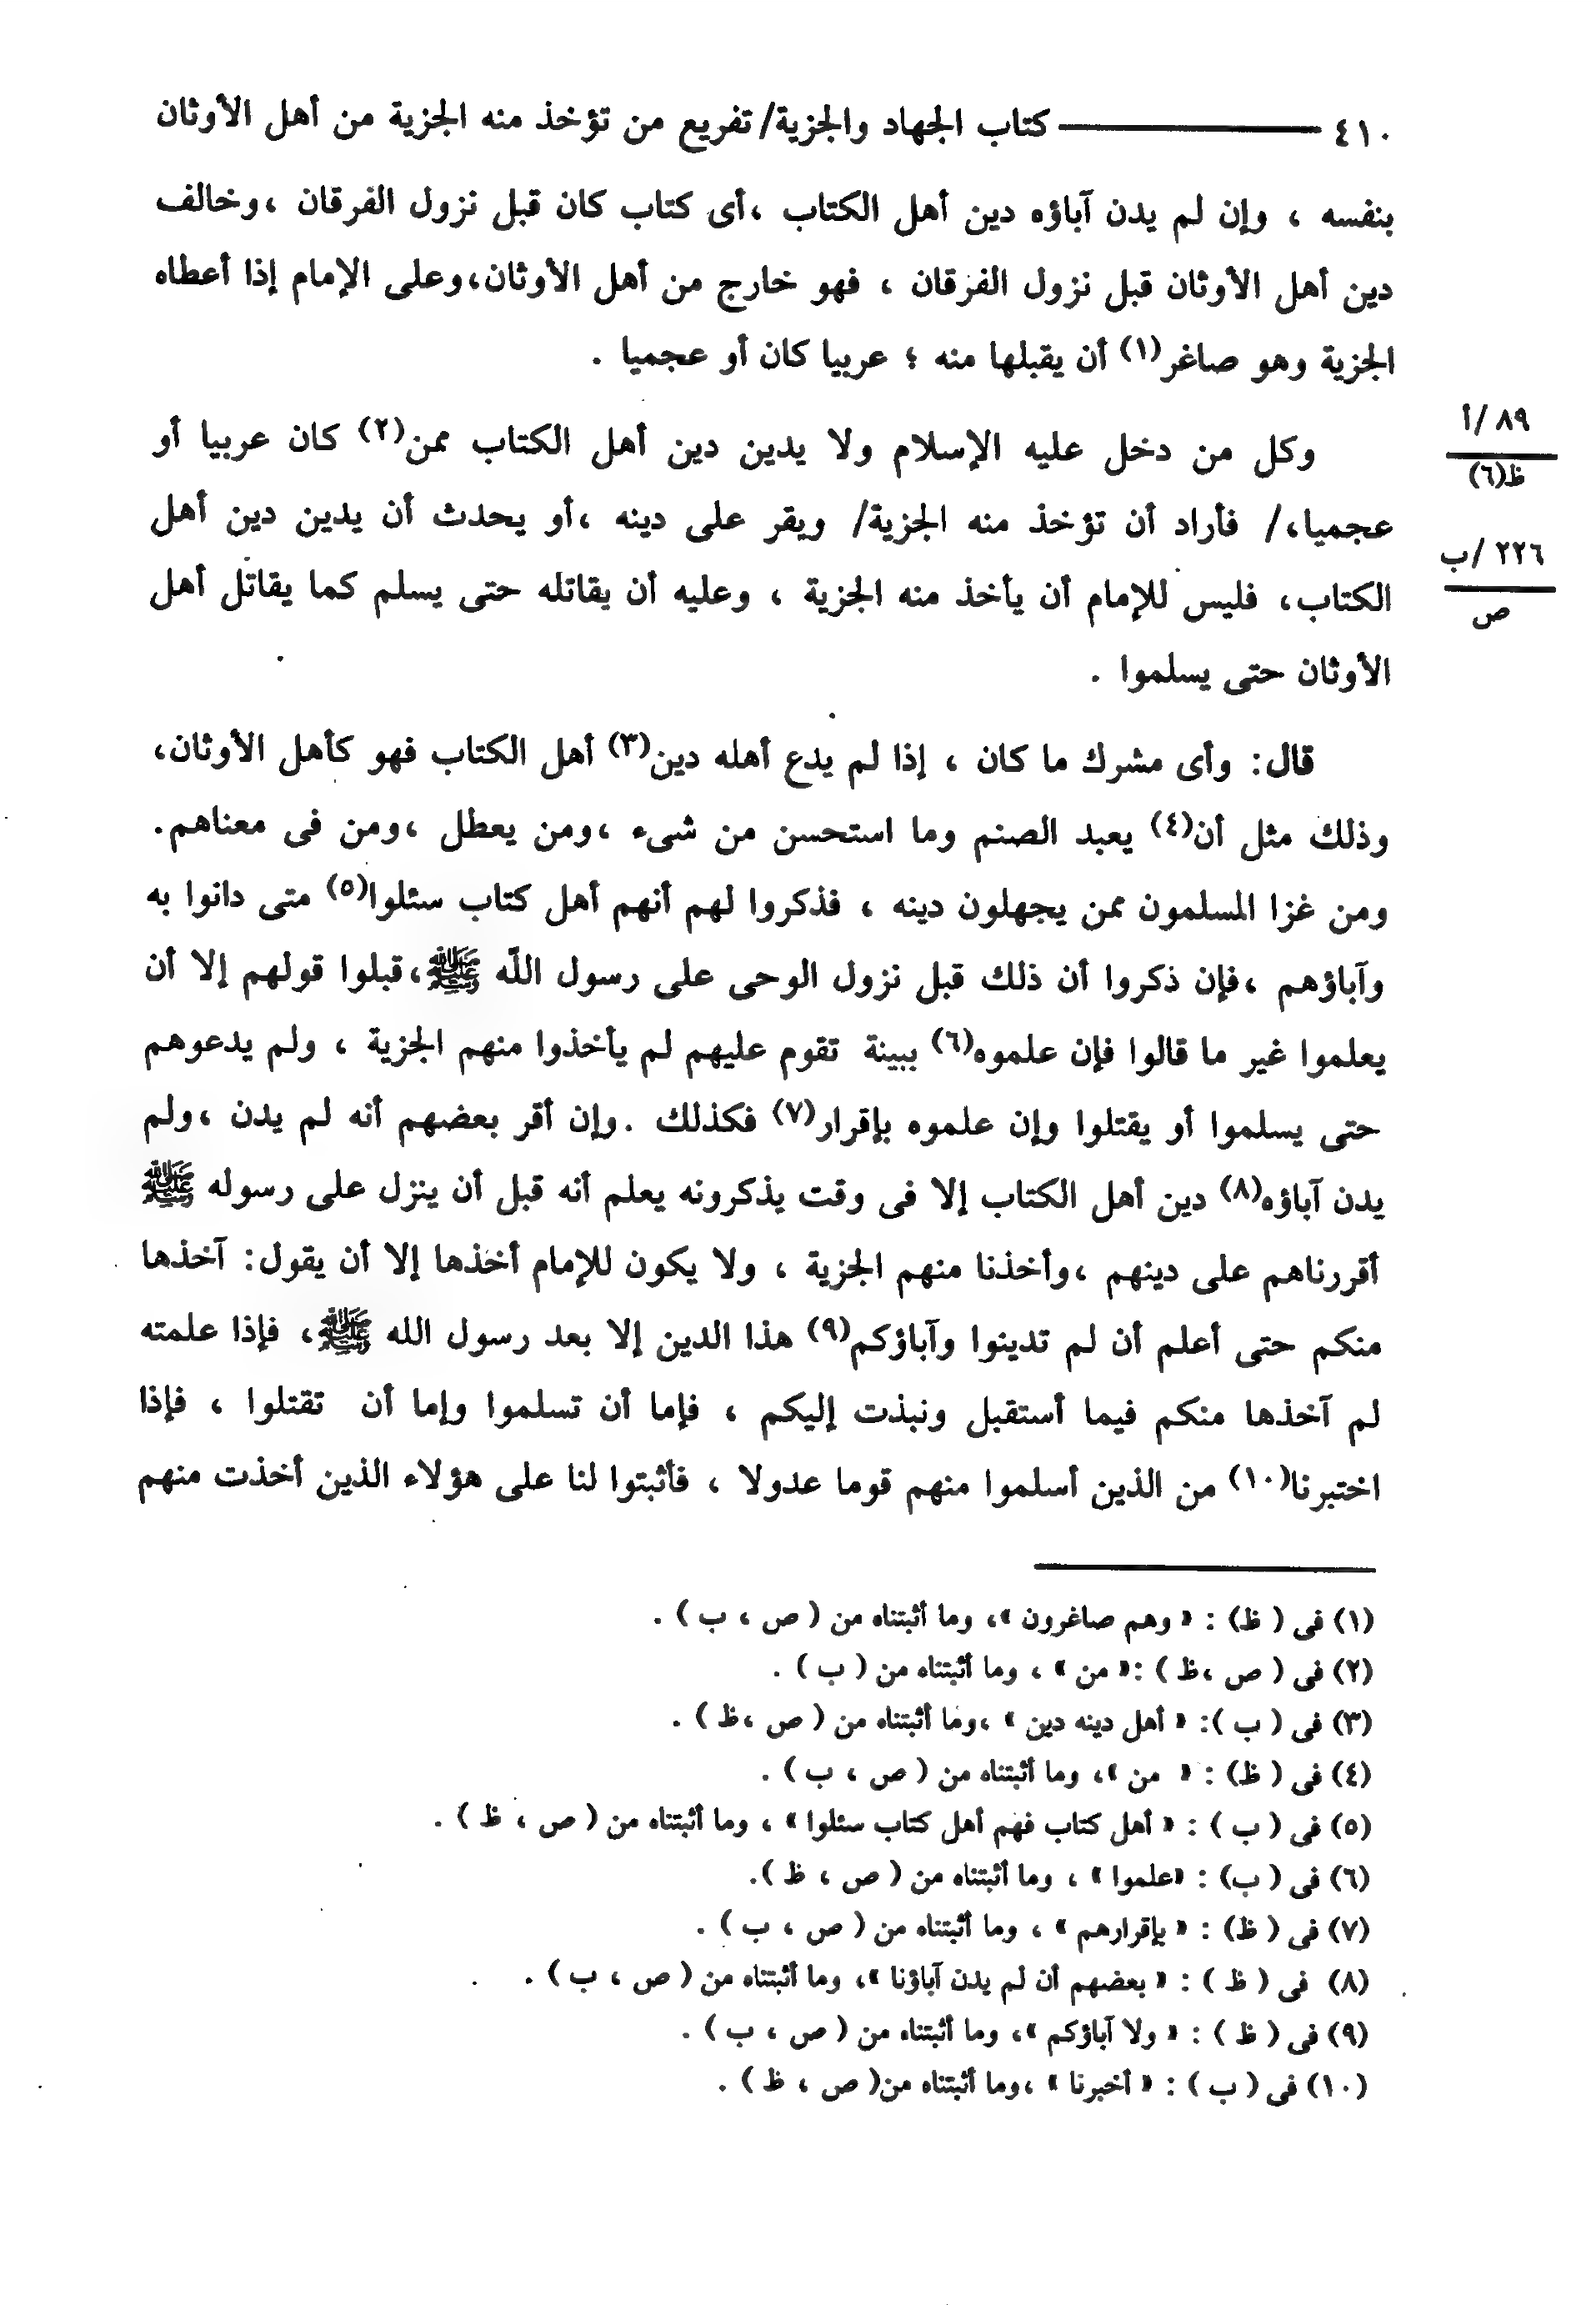 ٤١٠ ــــــــــــ كتاب الجهاد والجزية/ تفريع من تؤخذ منه الجزية من أهل الأوثان
بنفسه ، وإن لم يدن آباؤه دين أهل الكتاب ،أى كتاب كان قبل نزول الفرقان ،وخالف
دين أهل الأوثان قبل نزول الفرقان ، فهو خارج من أهل الأوثان،وعلى الإمام إذا أعطاه
الجزية وهو صاغر(١) أن يقبلها منه ؛ عربيا كان أو عجميا .
وكل من دخل عليه الإسلام ولا يدين دين أهل الكتاب ممن(٢) كان عربيا أو
٨٩ /أ
ظ(٦)
عجميا،/ فأراد أن تؤخذ منه الجزية/ ويقر على دينه ،أو يحدث أن يدين دين أهل
٢٢٦ /ب
ص
الكتاب، فليس للإمام أن يأخذ منه الجزية ، وعليه أن يقاتله حتى يسلم كما يقاتل أهل
الأوثان حتى يسلموا .
قال: وأى مشرك ما كان ، إذا لم يدع أهله دين(٣) أهل الكتاب فهو كأهل الأوثان،
وذلك مثل أن(٤) يعبد الصنم وما استحسن من شىء ،ومن يعطل ،ومن فى معناهم.
ومن غزا المسلمون ممن يجهلون دينه ، فذكروا لهم أنهم أهل كتاب سئلوا(٥) متى دانوا به
وآباؤهم ،فإن ذكروا أن ذلك قبل نزول الوحى على رسول اللّه ﷺ،قبلوا قولهم إلا أن
يعلموا غير ما قالوا فإن علموه(٦) ببينة تقوم عليهم لم يأخذوا منهم الجزية ، ولم يدعوهم
حتى يسلموا أو يقتلوا وإن علموه بإقرار(٧) فكذلك .وإن أقر بعضهم أنه لم يدن ،ولم
يدن آباؤه(٨) دين أهل الكتاب إلا فى وقت يذكرونه يعلم أنه قبل أن ينزل على رسوله ﷺ
أقررناهم على دينهم ،وأخذنا منهم الجزية ، ولا يكون للإمام أخذها إلا أن يقول: آخذها
منكم حتى أعلم أن لم تدينوا وآباؤكم(٩) هذا الدين إلا بعد رسول الله ﷺ، فإذا علمته
لم آخذها منكم فيما أستقبل ونبذت إليكم ، فإما أن تسلموا وإما أن تقتلوا ، فإذا
اختبرنا(١٠) من الذين أسلموا منهم قوما عدولا ، فأثبتوا لنا على هؤلاء الذين أخذت منهم
(١) فى ( ظ) : « وهم صاغرون »، وما أثبتناه من ( ص ، ب ) .
(٢) فى ( ص ،ظ ) :« من » ، وما أثبتناه من ( ب ) .
(٣) فى ( ب ): « أهل دينه دين » ،وما أثبتناه من ( ص ،ظ ) .
(٤) فى ( ظ) : « من »، وما أثبتناه من ( ص ، ب ) .
(٥) فى ( ب ) : « أهل كتاب فهم أهل كتاب سئلوا » ، وما أثبتناه من ( ص ، ظ ) .
(٦) فى ( ب) : «علموا » ، وما أثبتناه من ( ص ، ظ ).
(٧) فى ( ظ) : « بإقرارهم » ، وما أثبتناه من ( ص ، ب ) .
(٨) فى ( ظ ) : « بعضهم أن لم يدن آباؤنا »، وما أثبتناه من ( ص ، ب ) .
(٩) فى ( ظ ) : « ولا آباؤكم »، وما أثبتناه من ( ص ، ب ) .
(١٠) فى ( ب ) : « أخبرنا » ،وما أثبتناه من( ص ، ظ ) .